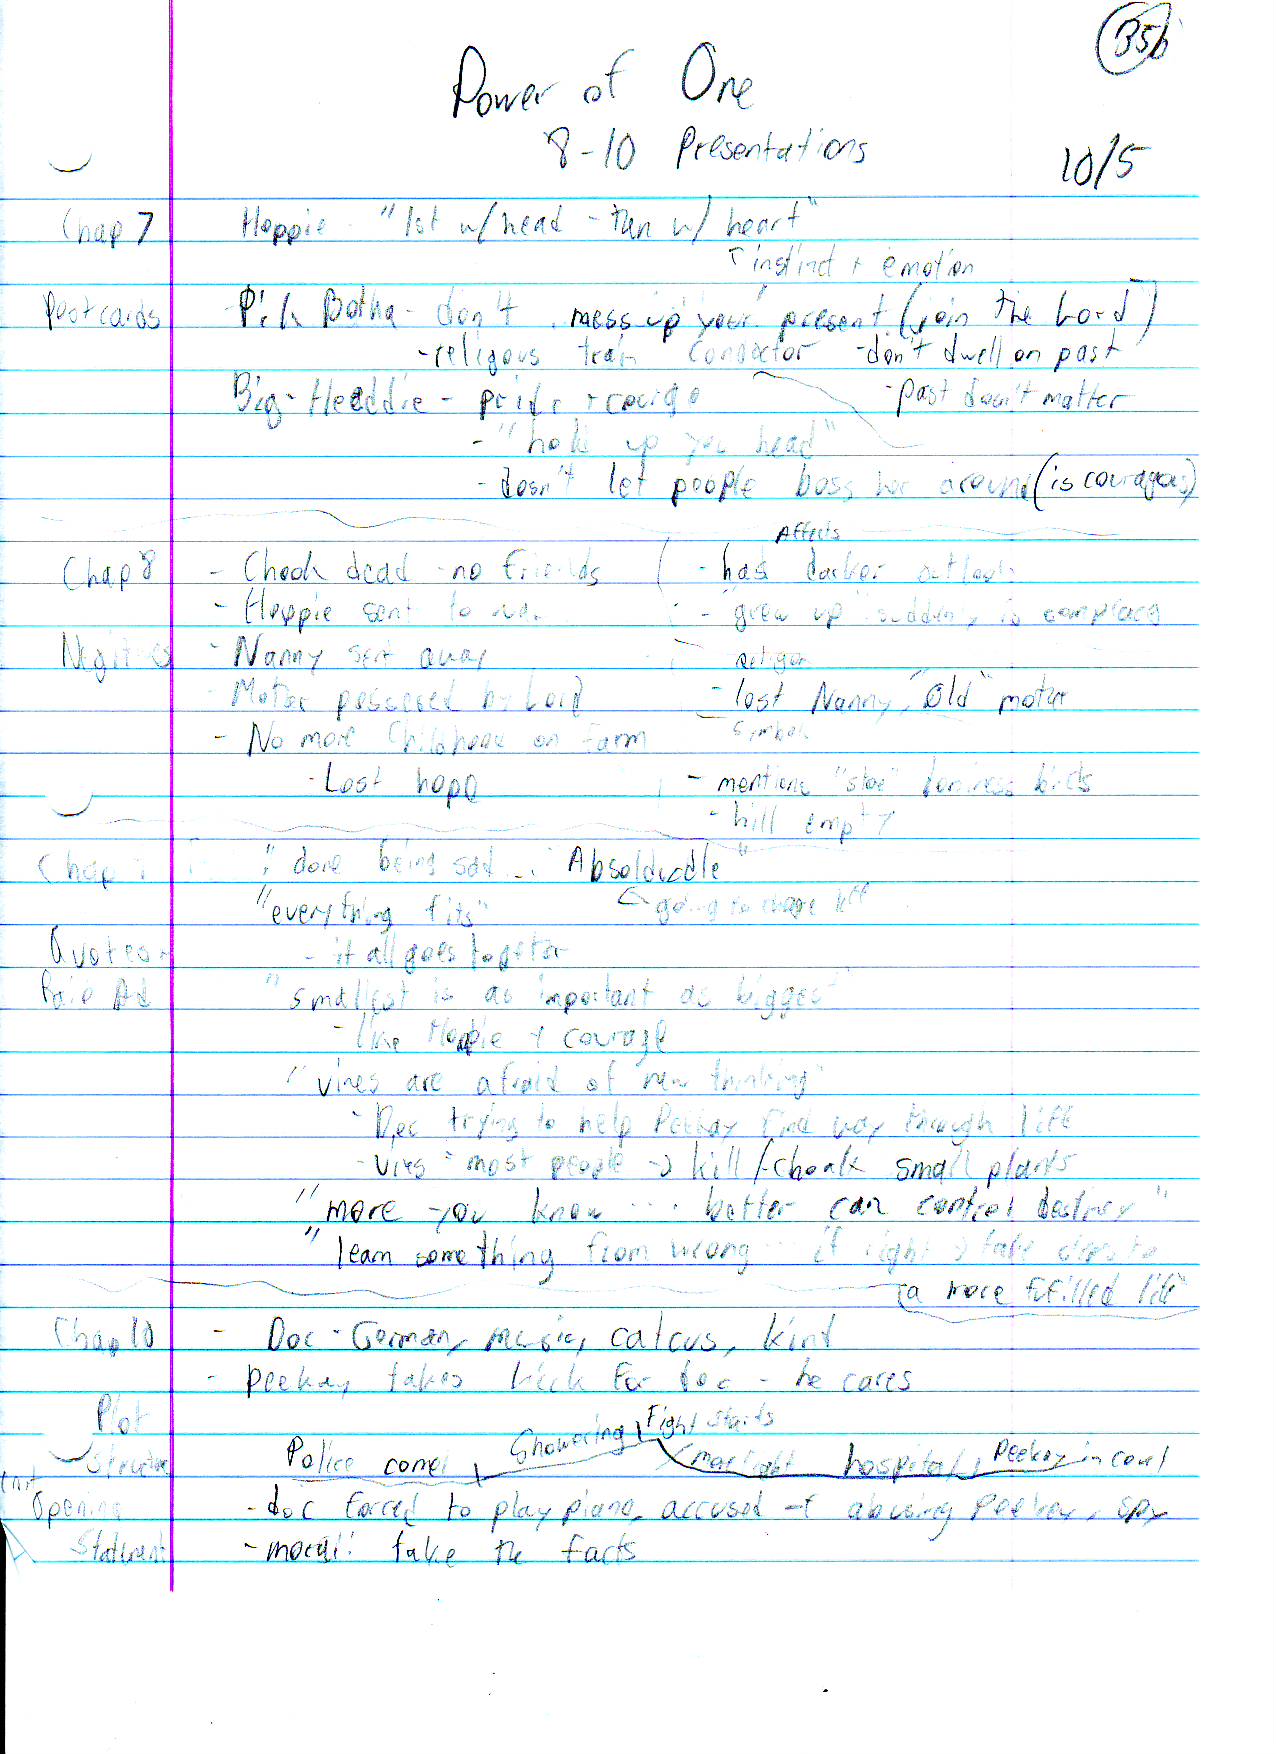 35b
Power of One
8-10 Presentations
10/5
Chap 7 Hoppie "1st w/ head - then w/ heart"
↑ instinct + emotion
Postcards - Pik Botha - don't mess up your present (join the Lord)
- religous train conductor - don't dwell on past
Big-Hettie - pride + courage - past don't matter
- "hold up you head"
- dosn't let people boss her around (is courageous)
Affects
Chap 8 - Chook dead - no friends - has darker outlook
- Hoppie sent to war - "grew up" suddenly is
- Nanny sent away religion
- Mother possesed by Lord - lost Nanny, "Old" mother
- No more Childhood on farm symbols
- Lost hope - mentions "stone" lonliness birds
- hill empty
Chap "done being sad ... Absoloodle"
"everything fits" going to change
Quotes - it all goes together
"smallest is as important as biggest"
- like Hoppie + courage
"vines are afraid of new thinking"
- Doc trying to help Peekay find way through life
- vines = most people → kill/choak small plants
"more you know .... better can control destiny"
"learn something from wrong ... if right → take
a more fufilled life"
Chap 10 - Doc - German, music, cactus, kind
- peekay takes kick for doc - he cares
Plot
Fight starts
Structure Police come Showering hospital, Peekay in court
Opening - doc forced to play piano, accused of abusing Peekay, spy
Statment - moral: take the facts